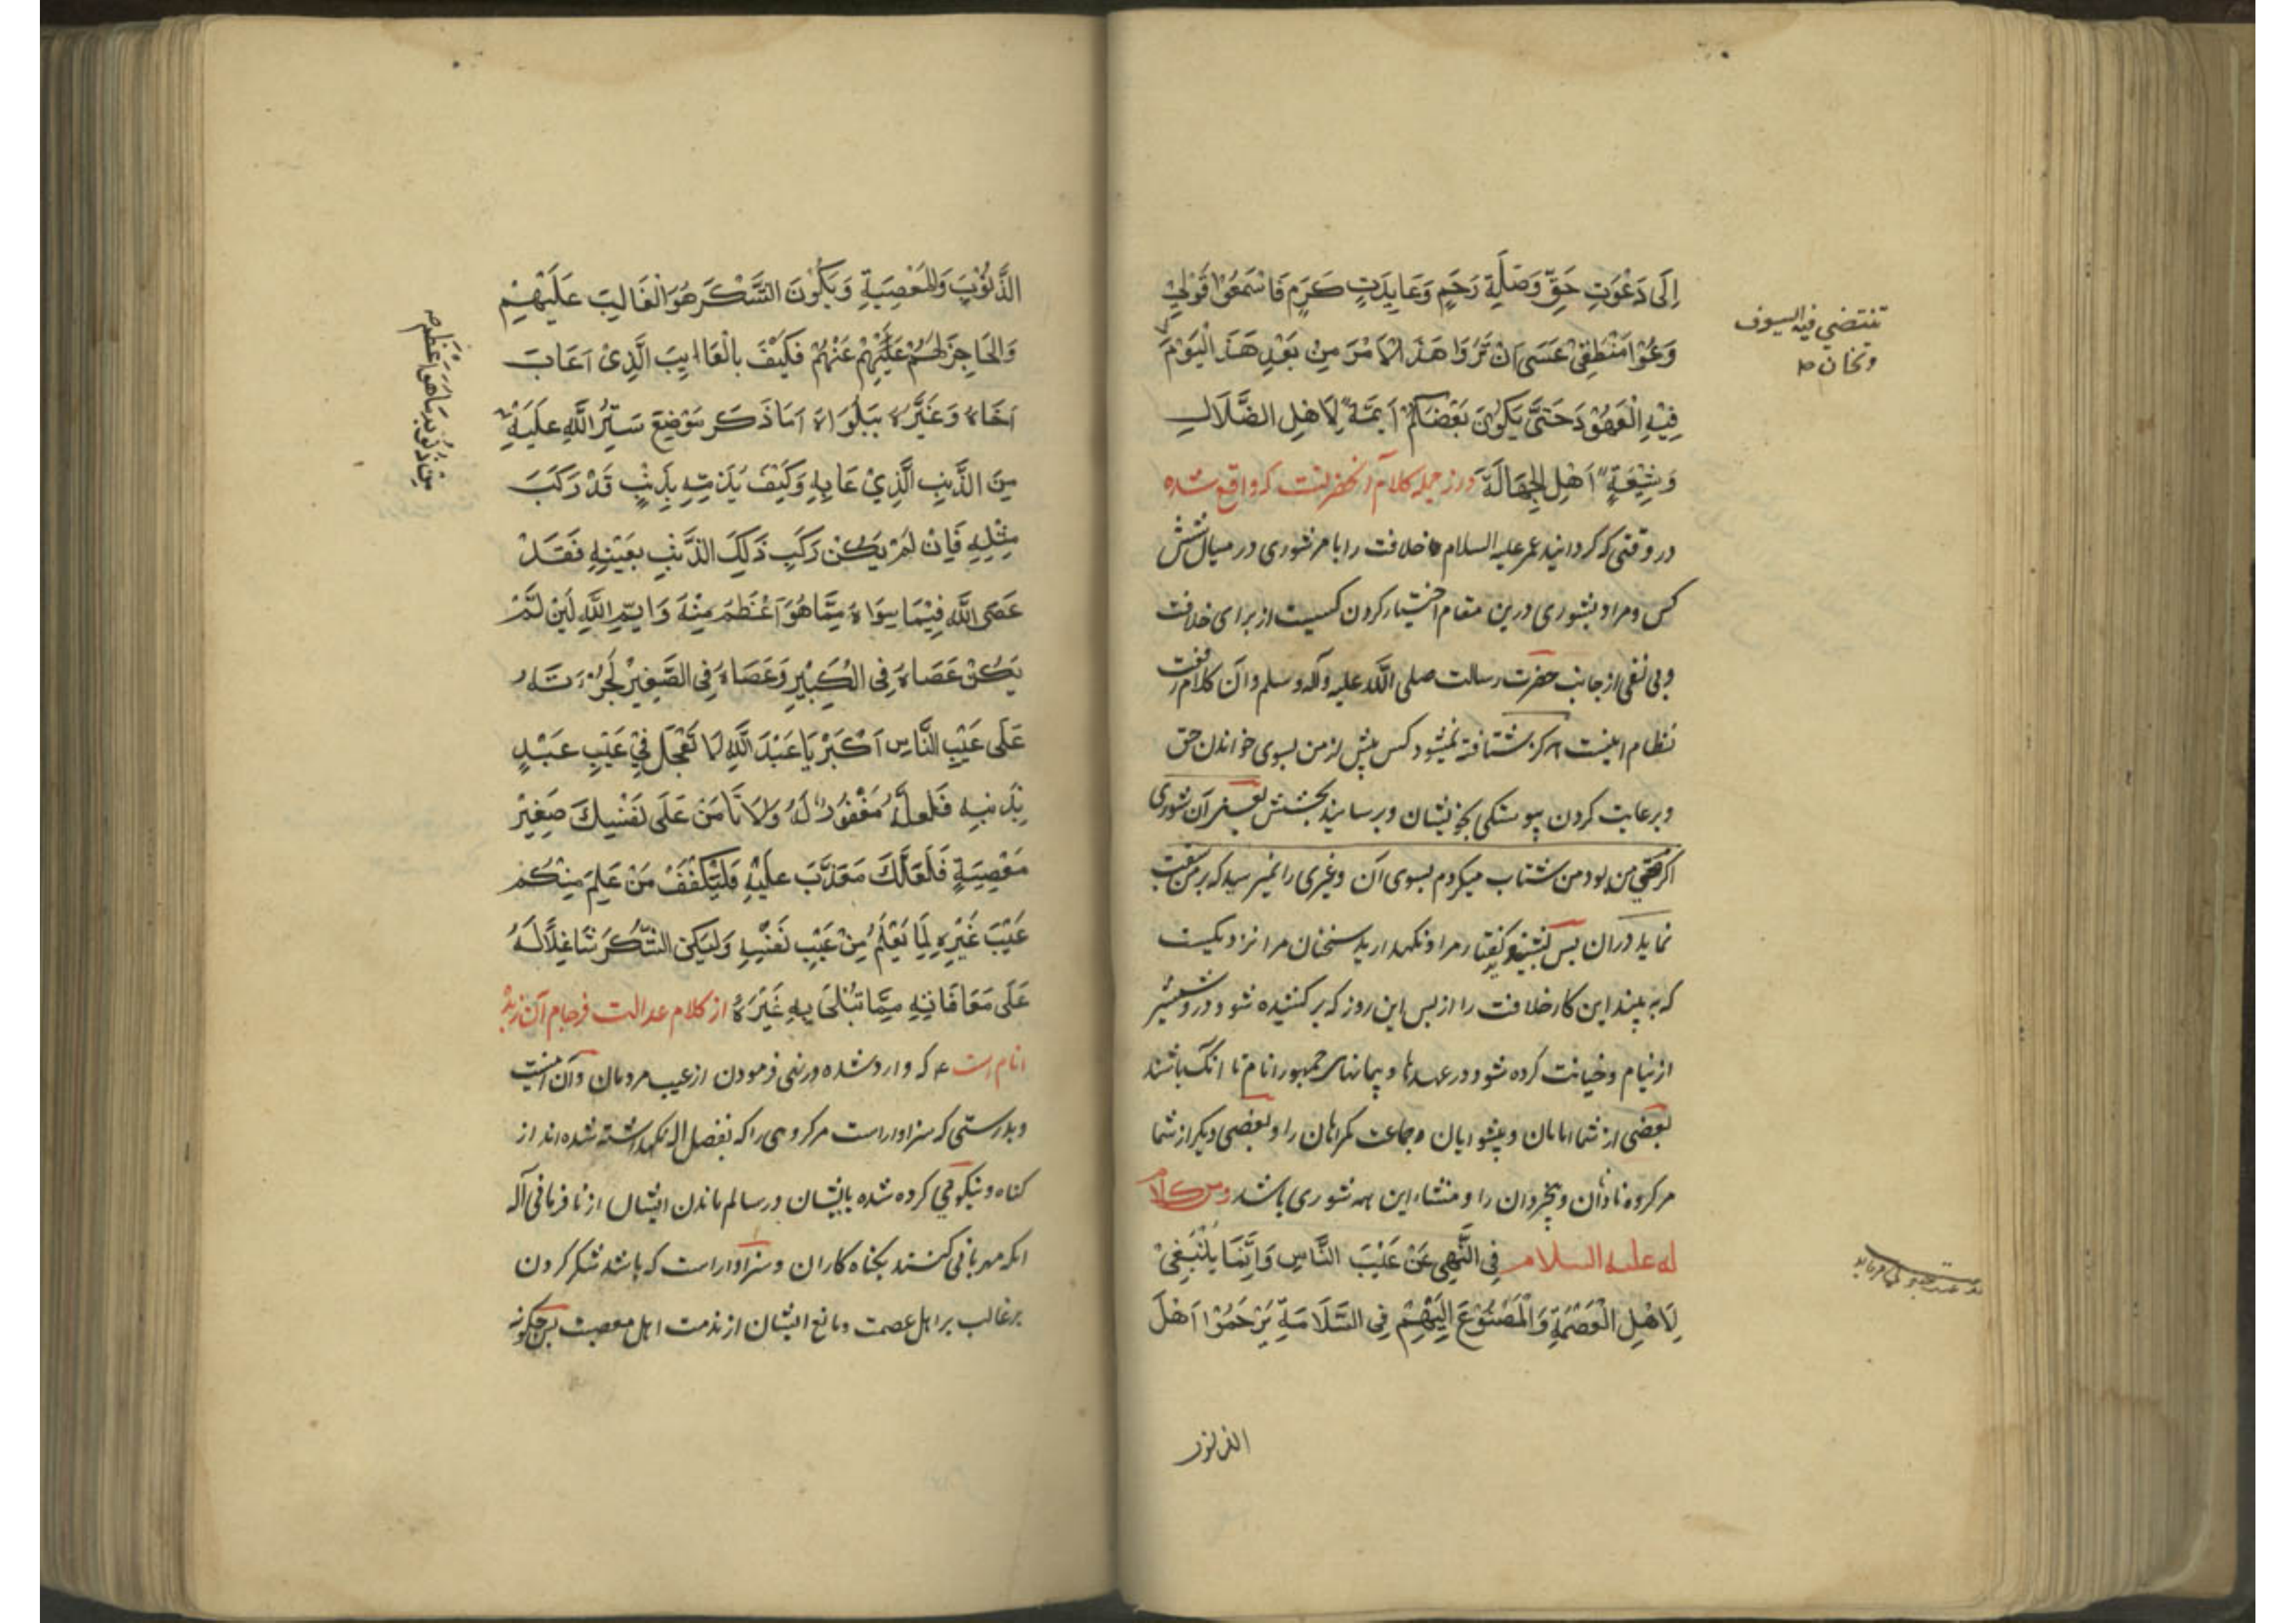 اِلَی دَعْوَتِ حَقّ وَصَلَةِ رَحِمٍ وَعَایِدَتِ کَرَمٍ فَاسْمَعُوْا قَوْلِیْ
وَعُوْا مَنْطِقِیْ عَسَی اَنْ تَرَوْا هَذَا الْاَمْرَ مِنْ بَعْدِ هَذَ الْیَوْمَ
تنتضی فیه السیوف
وتخان
فِیْهِ الْعَهُوْدَ حَتَّی یَکُوْنَ بَعْضُکُمْ اَیِمَّةً لِاَهْلِ الضَّلَالِ
وَشِیْعَةٍ اَهْلِ الْجِهَالَةَ درز جمله کلام آنحضرتست که واقع شده
در وقتی که کردانید عمر علیه السلام خلافت را با مر شوری در میان شش
کس ومراد بشوری درین مقام اختیار کردن کسیست از برای خلافت
وبی نصی از جانب حضرت رسالت صلی الله علیه وآله وسلم وآن کلام
نظام اینست هرکز شتافته نمیشود کس پیش از من بسوی خواندن حق
وبرعایت کردن پیوستکی بخویشان وبرسانید بخشش یعنی آن شوری
اکر حق من بود من شتاب میکردم بسوی آن وغیری را نمیرسید که بر من سبقت
نماید دران پس بشنوید کفتار مرا ونکهدارید سخنان مرا نزدیکست
که به بینید این کار خلافت را از پس این روز که برکشیده شود درو شمشیر
از نیام وخیانت کرده شود در عهدها وپیمانهای جمهور انام تا انک باشند
بعضی از شما امامان وپیشوایان جماعت کمراهان را وبعضی دیکر از شما
مر کروه نادان وبیخردان را ومنشاء این همه شوری باشد ومن کلام
له علیه السلام فِی النَّهِی عَنْ عَیْبَ النَّاسِ وَاِنَّمَا یَنْبَغِیْ
لِاَهْلِ الْعَصْمَةِ وَالْمَصْنُوْعَ اِلَیْهِمْ فِی السَّلَامَةِ یَرْحَمُوْا اَهْلَ
الذنوب
الذُّنُوْبِ وَالْمَعْصِیَةِ وَیَکُوْنَ الشُّکْرَ هُوَ الْغَالِبَ عَلَیْهِمْ
وَالْحَاجِزَ لَهُمْ عَلَیْهِمْ عَنْهُمْ فَکَیْفَ بِالْعَایِبِ الَّذِیْ اَعَابَ
اَخَاهُ وَعَیَّرَهُ بِبَلْوَاهُ اَمَا ذَکَرَ مَوْضِعَ سَتْرِ اللَّهِ عَلَیْهِ
من ذنوبه مما هو اعظم
مِنَ الذَّنْبِ الَّذِیْ عَابِهِ وَکَیْفَ یُذَمِّهِ بِذَنْبٍ قَدْ رَکَبَ
مِثْلِهِ فَاِنْ لَمْ یَکُنْ رَکَبِ ذَلِکَ الذَّنْبِ بِعَیْنِهِ فَقَدْ
عَصَی اللَّهَ فِیْمَا سِوَاهُ مِمَّا هُوَ اَعْظَمَ مِنْهُ وَایْمِ اللَّهِ لَئِنْ لَمْ
یَکُنْ عَصَاهُ فِی الْکَبِیْرِ وَعَصَاهُ فِی الصَّغِیْرِ لَجُرْءَتَهُ
عَلَی عَیْبِ النَّاسِ اَکْبَرْ یَا عَبْدَ اللَّهِ لَا تَعْجَلْ فِیْ عَیْبِ عَبْدٍ
بِذَنْبِهِ فَلَعَلَّهُ مَغْفُوْرٌ لَهُ وَلَا تَامَنْ عَلَی نَفْسِکَ صَغِیْرَ
مَعْصِیَةٍ فَلَعَلَّکَ مُعَذَّبَ عَلَیْهِ فَلْیَکْفُفْ مَنْ عَلِمَ مِنْکُمْ
عَیْبَ غَیْرِهِ لِمَا یَعْلَمُ مِنْ عَیْبِ نَفْسِهِ وَلْیَکُنِ الشُّکْرَ شَاغِلًا لَهُ
عَلَی مَعَافَاتِهِ مِمَّا تُبْلَی بِهِ غَیْرَهُ از کلام عدالت فرجام آن
انام است که وارد شده در نهی فرمودن از عیب مردمان وآن اینست
وبدرستی که سزاوار است مر کروهی را که بفضل اله نکهداشته شده اند از
کناه ونیکوئی کرده شده بایشان در سالم ماندن ایشان از نافرمانی آله
انکه مهربانی کنند بکناه کاران وسزاوار است که باشد شکر کردن
بر غالب بر اهل عصمت ومانع ایشان از مذمت اهل معصیت پس چکونه